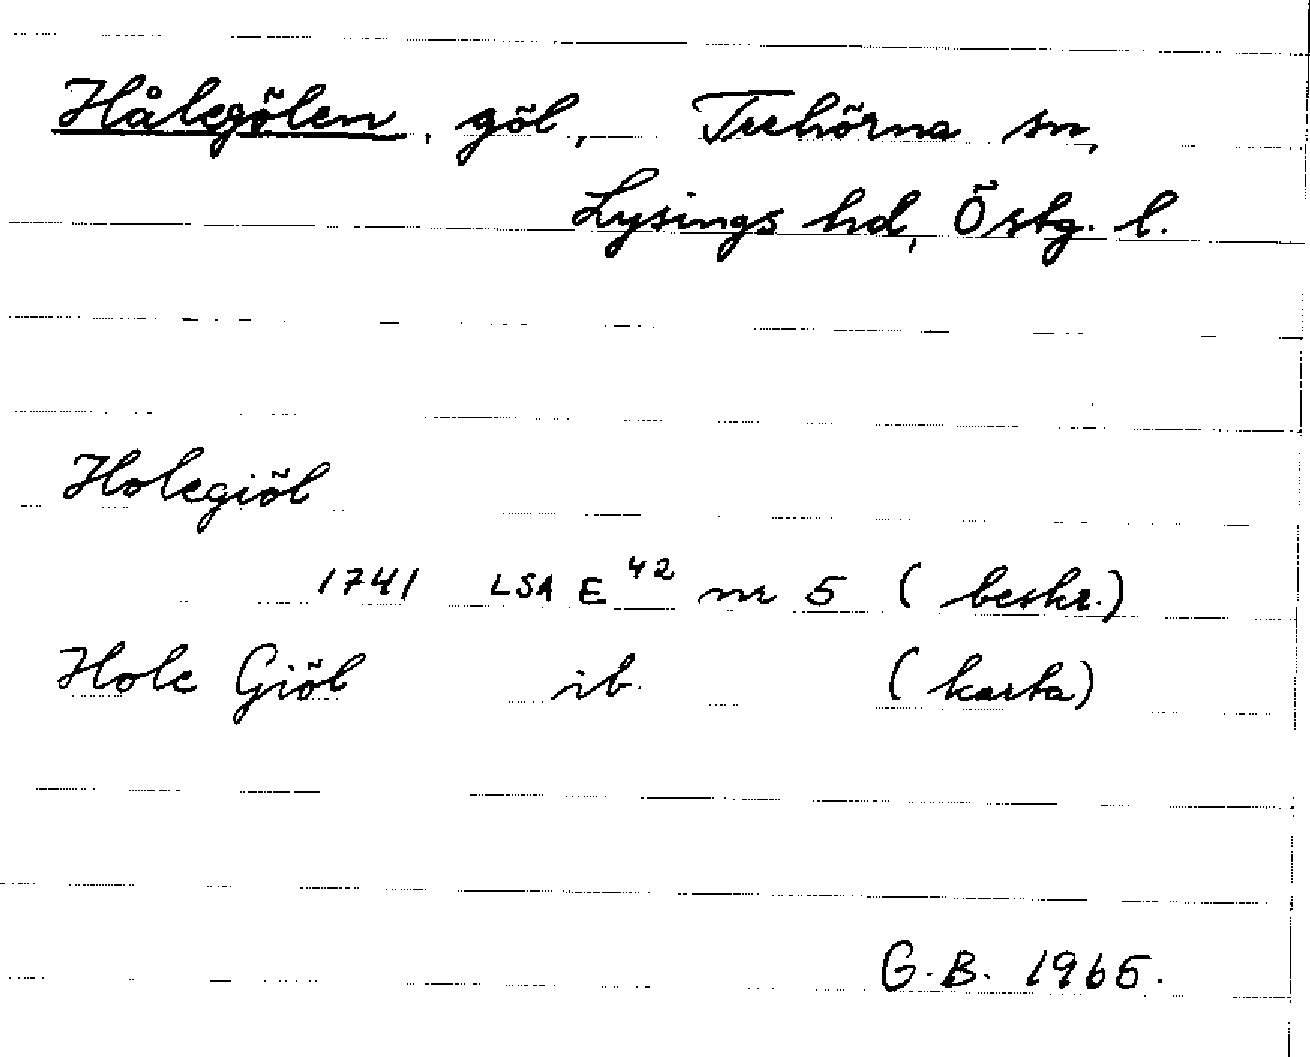 Hålegölen, göl, Trehörna sn,
Lysings hd, Östg. l.
Holegiöl
1741 LSA E 42 nr 5 (beskr.)
Hole Giöl ib. (karta)
G.B. 1965.